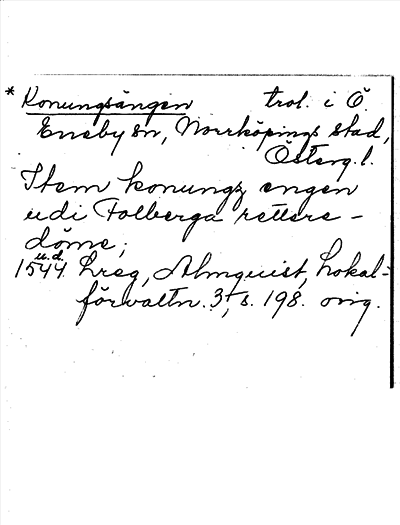 * Konungsängen trol. i Ö.
Eneby sn, Norrköpings stad,
Österg. l.
Item konungz engen
udi Folberga rettere-
döme;
u.d.
1544 Lreg, Almquist, Lokal-
förvaltn. 3, s. 198. orig.